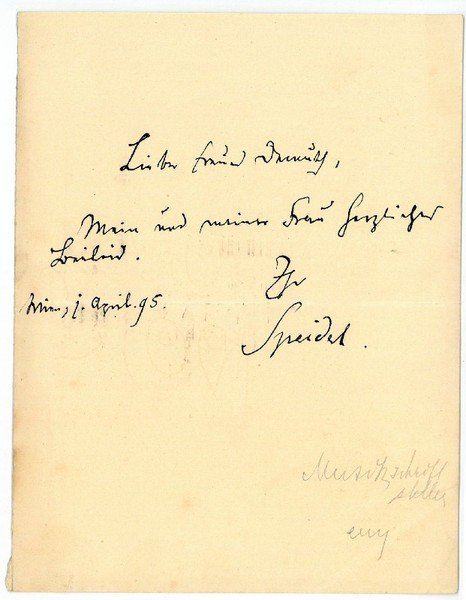 Lieber Freund Demuth,
Mein und meiner Frau herzlicher
Beileid.
Ihr
Wien, 1. April. 95.
Speidel.
Musikschrift
steller